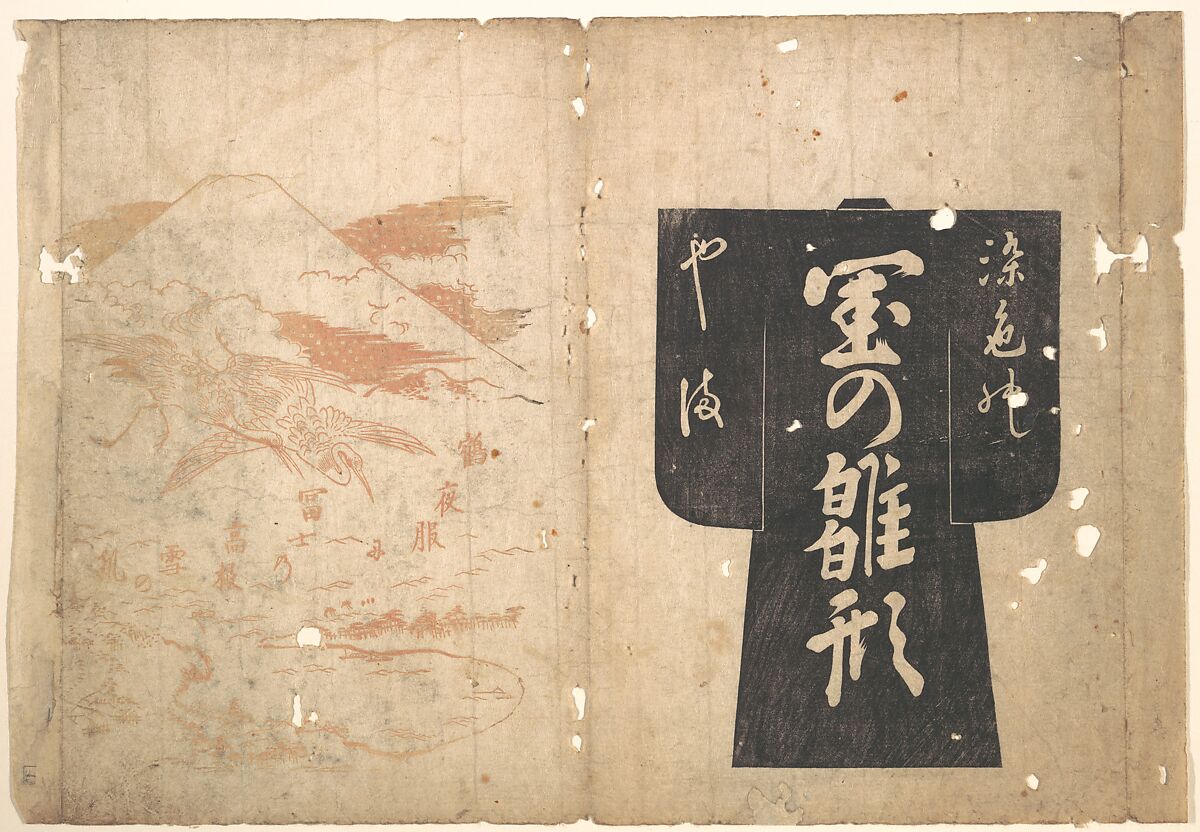 染色の
閨の雛形
やま
鶴
夜服
冨士乃
高根
雪の
肌